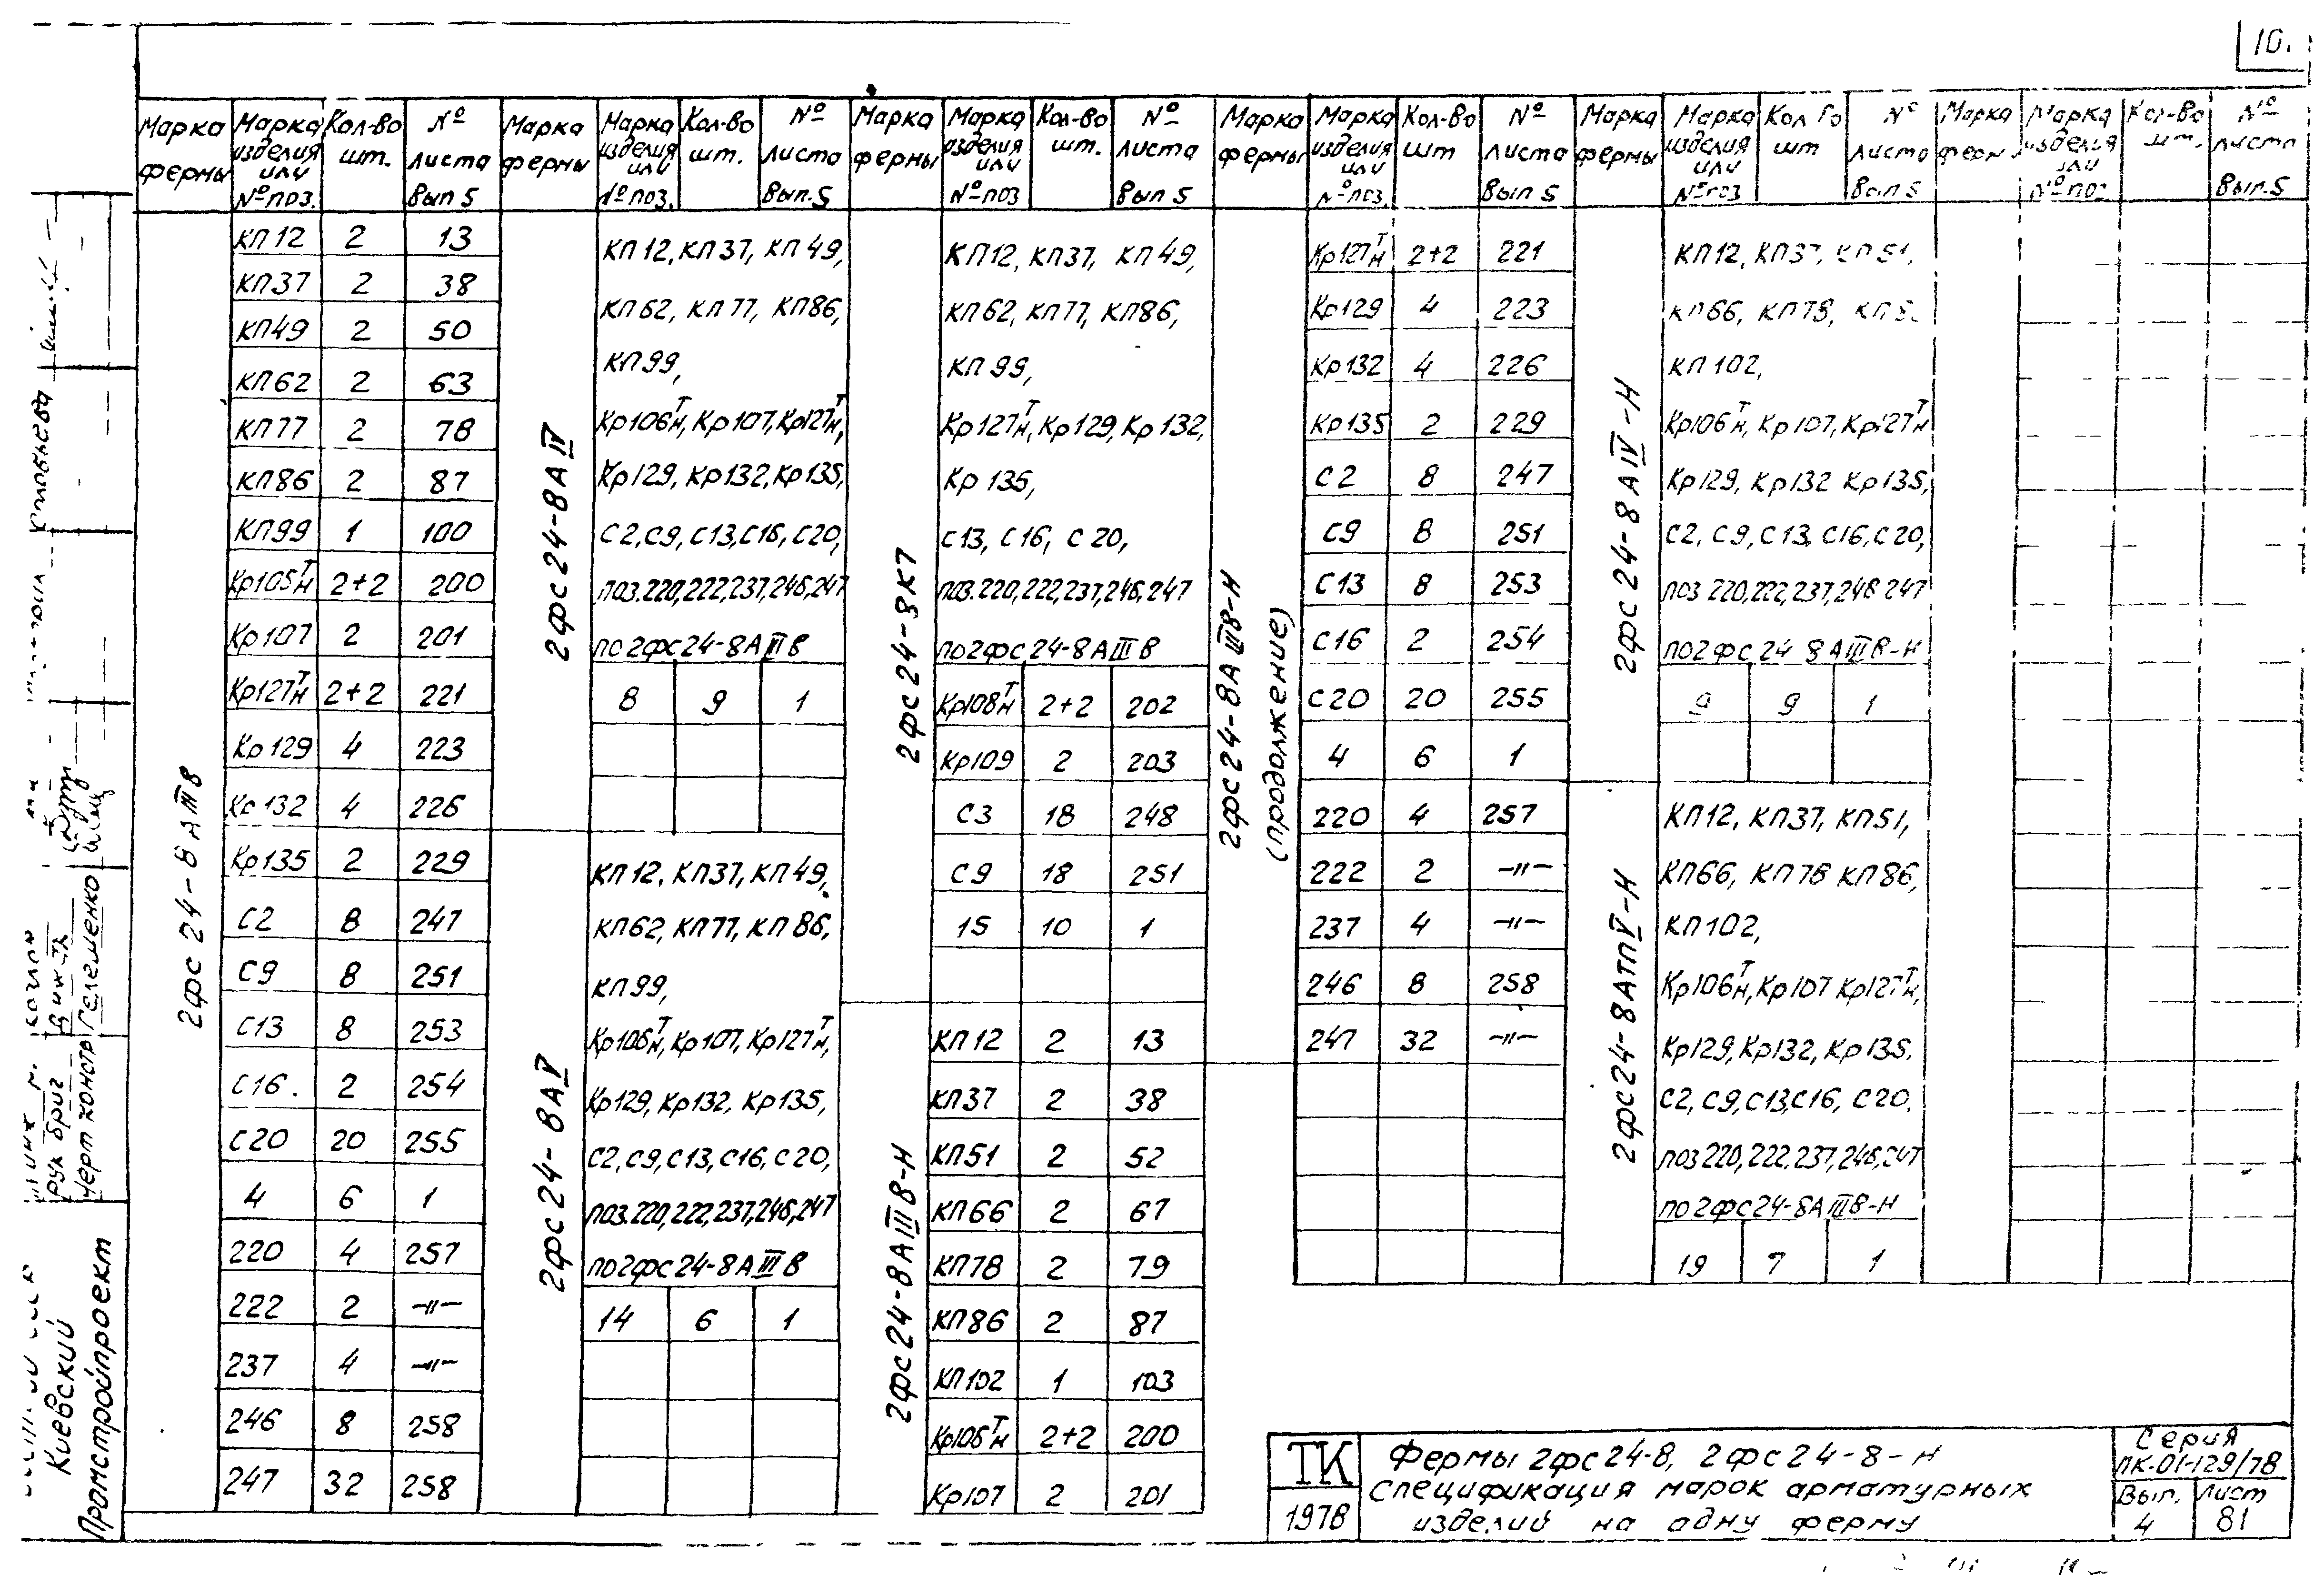 10.
Марка фермы | Марка изделия или № поз. | Кол-во шт. | № листа Вып 5
2фс24-8АIIIв
КП12 2 13
КП37 2 38
КП49 2 50
КП62 2 63
КП77 2 78
КП86 2 87
КП99 1 100
Кр105Тн 2+2 200
Кр107 2 201
Кр127Тн 2+2 221
Кр129 4 223
Кр132 4 226
Кр135 2 229
С2 8 247
С9 8 251
С13 8 253
С16. 2 254
С20 20 255
4 6 1
220 4 257
222 2 –"–
237 4 –"–
246 8 258
247 32 258
Марка фермы | Марка изделия или № поз. | Кол-во шт. | № листа Вып.5
2фс24-8АIV
КП12, КП37, КП49,
КП62, КП77, КП86,
КП99,
Кр106Тн, Кр107, Кр127Тн,
Кр129, Кр132, Кр135,
С2, С9, С13, С16, С20,
поз.220,222,237,246,247
по 2фс24-8АIIIв
8 9 1
2фс24-8АV
КП12, КП37, КП49,
КП62, КП77, КП86,
КП99,
Кр106Тн, Кр107, Кр127Тн,
Кр129, Кр132, Кр135,
С2, С9, С13, С16, С20,
поз.220,222,237,246,247
по 2фс24-8АIIIв
14 6 1
Марка фермы | Марка изделия или № поз | Кол-во шт. | № листа Вып 5
2фс24-8К7
КП12, КП37, КП49,
КП62, КП77, КП86,
КП99,
Кр127Тн, Кр129, Кр132,
Кр135,
С13, С16, С20,
поз.220,222,237,246,247
по 2фс24-8АIIIв
Кр108Тн 2+2 202
Кр109 2 203
С3 18 248
С9 18 251
15 10 1
2фс24-8АIIIв-н
КП12 2 13
КП37 2 38
КП51 2 52
КП66 2 67
КП78 2 79
КП86 2 87
КП102 1 103
Кр106Тн 2+2 200
Кр107 2 201
Марка фермы | Марка изделия или № поз. | Кол-во шт | № листа Вып 5
2фс24-8АIIIв-н
(продолжение)
Кр127Тн 2+2 221
Кр129 4 223
Кр132 4 226
Кр135 2 229
С2 8 247
С9 8 251
С13 8 253
С16 2 254
С20 20 255
4 6 1
220 4 257
222 2 –"–
237 4 –"–
246 8 258
247 32 –"–
Марка фермы | Марка изделия или № поз | Кол во шт | № листа Вып 5
2фс24-8АIV-н
КП12, КП37, КП51,
КП66, КП78,
КП102,
Кр106Тн, Кр107, Кр127Тн
Кр129, Кр132 Кр135,
С2, С9, С13, С16, С20,
поз 220,222,237,246 247
по 2фс24 8АIIIв-н
9 9 1
2фс24-8АтпV-н
КП12, КП37, КП51,
КП66, КП78 КП86,
КП102,
Кр106Тн, Кр107 Кр127Тн,
Кр129, Кр132, Кр135.
С2, С9, С13, С16, С20,
поз 220,222,237,246,247
по 2фс24-8АIIIв-н
19 7 1
Марка ферм | Марка изделия или № поз. | Кол-во шт. | № листа Вып.5
Киевский
Промстройпроект
рук бриг
Черт констр
Гелеменко
ТК
1978
Фермы 2фс24-8, 2фс24-8-н
Спецификация марок арматурных
изделий на одну ферму
Серия
ПК-01-129/78
Вып. 4
Лист 81